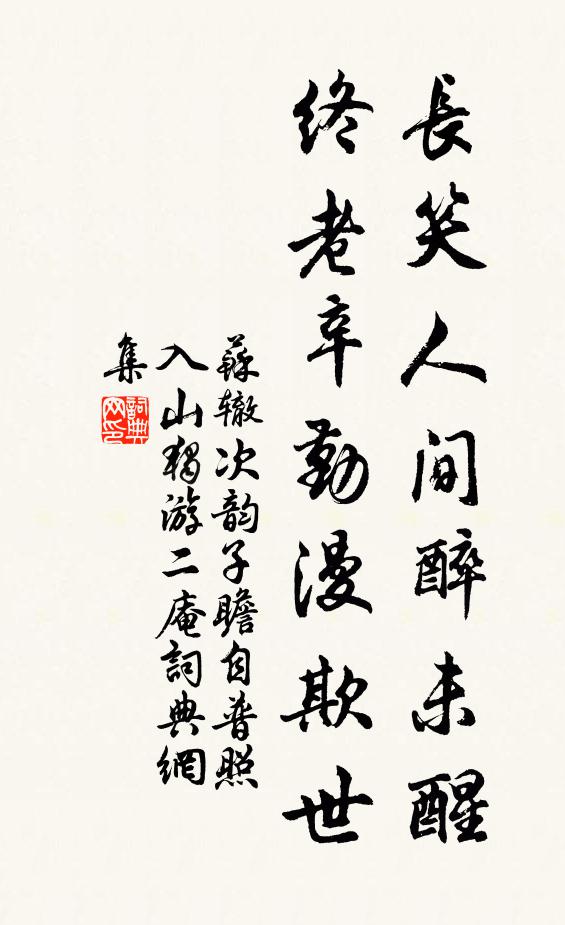 長笑人间醉未醒
終老辛勤漫欺世
蘇辙次韵子瞻自普照
入山獨游二庵詞典網
集
詞典
网印